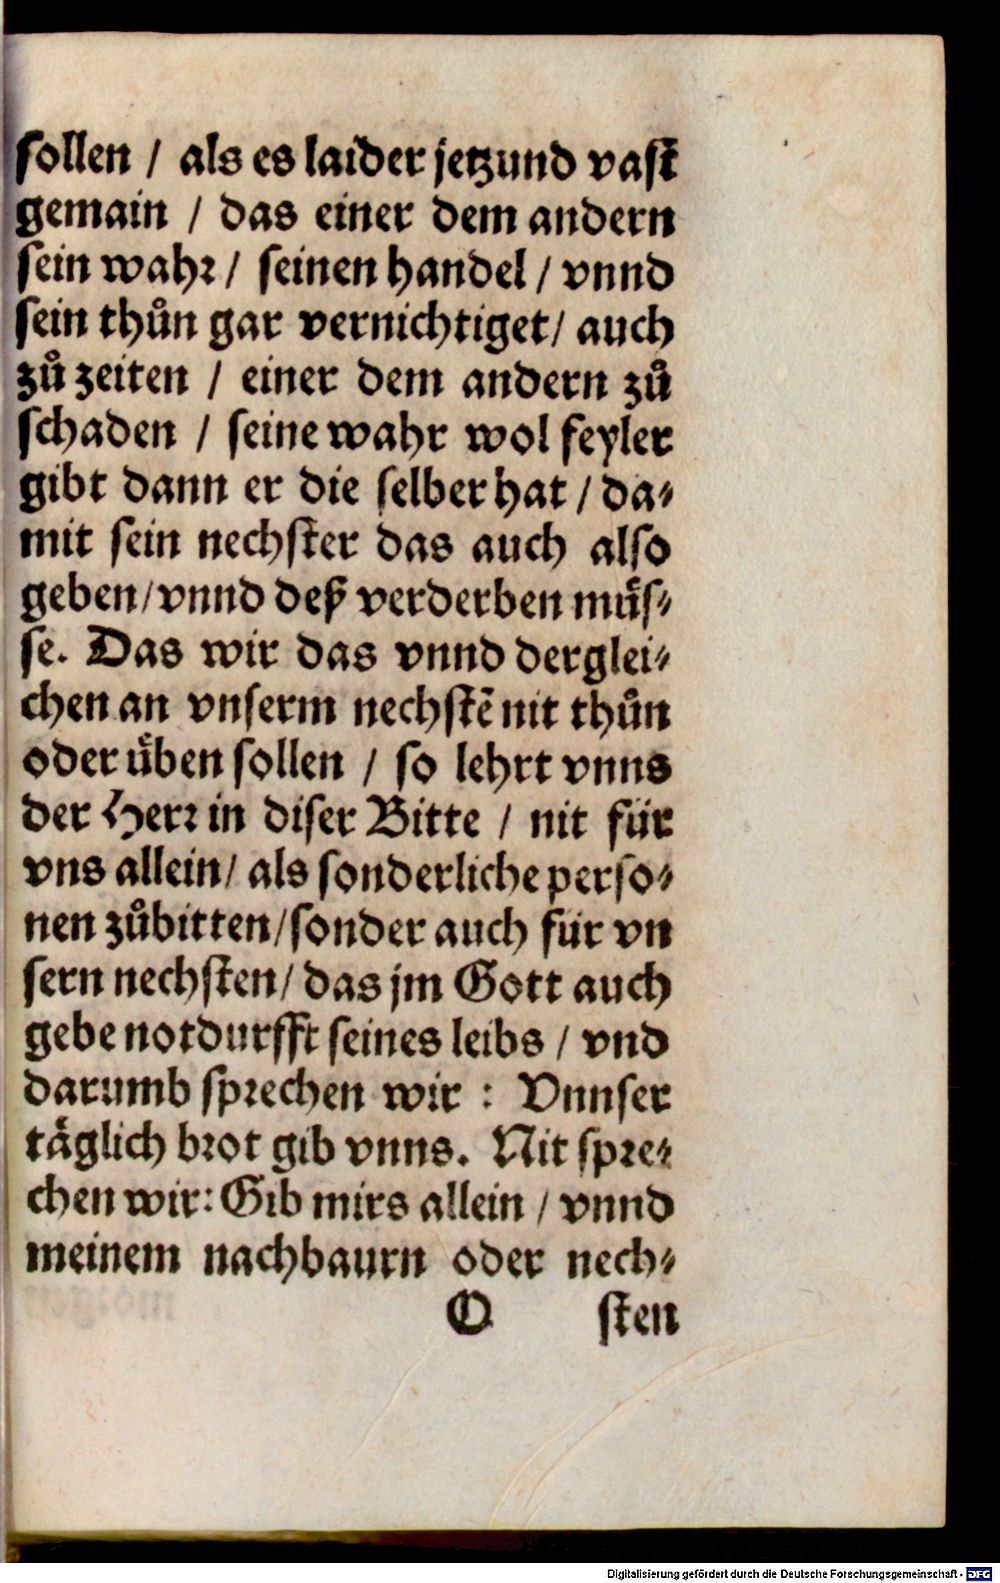 sollen / als es laider jetzund vast
gemain / das einer dem andern
sein wahr / seinen handel / vnnd
sein thůn gar vernichtiget / auch
zů zeiten / einer dem andern zů
schaden / seine wahr wol feyler
gibt dann er die selber hat / da⸗
mit sein nechster das auch also
geben / vnnd deß verderben müs⸗
se. Das wir das vnnd derglei⸗
chen an vnserm nechstē nit thůn
oder üben sollen / so lehrt vnns
der Herr in diser Bitte / nit für
vns allein / als sonderliche perso⸗
nen zůbitten / sonder auch für vn
sern nechsten / das jm Gott auch
gebe notdurfft seines leibs / vnd
darumb sprechen wir : Vnnser
täglich brot gib vnns. Nit spre⸗
chen wir: Gib mirs allein / vnnd
meinem nachbaurn oder nech⸗
O sten
Digitalisierung gefördert durch die Deutsche Forschungsgemeinschaft - DFG